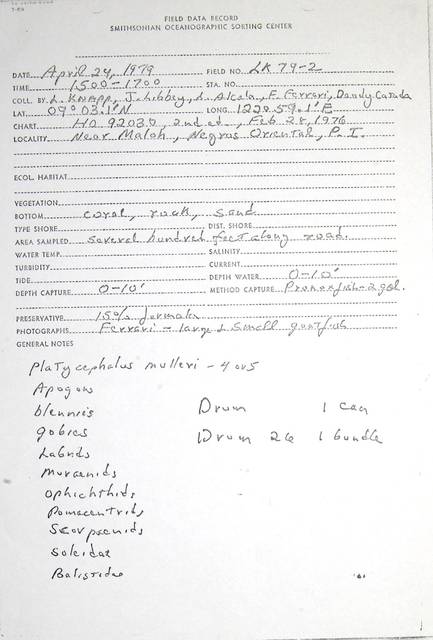 FIELD DATA RECORD
SMITHSONIAN OCEANOGRAPHIC SORTING CENTER
DATE April 24, 1979 FIELD NO. LK 79-2
TIME 1500-1700 STA. NO.
COLL. BY L. Knapp, J. Libbey, A. Alcala, F. Ferrari, Dandy Canada
LAT. 09° 03.1'N LONG. 122° 59.1'E
CHART HO 92030, 2nd ed., Feb 28, 1976
LOCALITY Near Maloh, Negros Oriental, P. I.
ECOL. HABITAT
VEGETATION
BOTTOM coral, rock, sand
TYPE SHORE DIST. SHORE
AREA SAMPLED several hundred feet along road.
WATER TEMP. SALINITY
TURBIDITY CURRENT
TIDE DEPTH WATER 0-10'
DEPTH CAPTURE 0-10' METHOD CAPTURE Pronoxfish-2 gal.
PRESERVATIVE 15% formalin
PHOTOGRAPHS Ferrari - large & small
GENERAL NOTES
Platycephalus mulleri - 4 or 5
Apogons
blennies Drum 1 can
gobies Drum 26 1 bundle
Labrids
Muraenids
Ophichthids
Pomacentrids
Scorpaenids
Soleidae
Balistidae